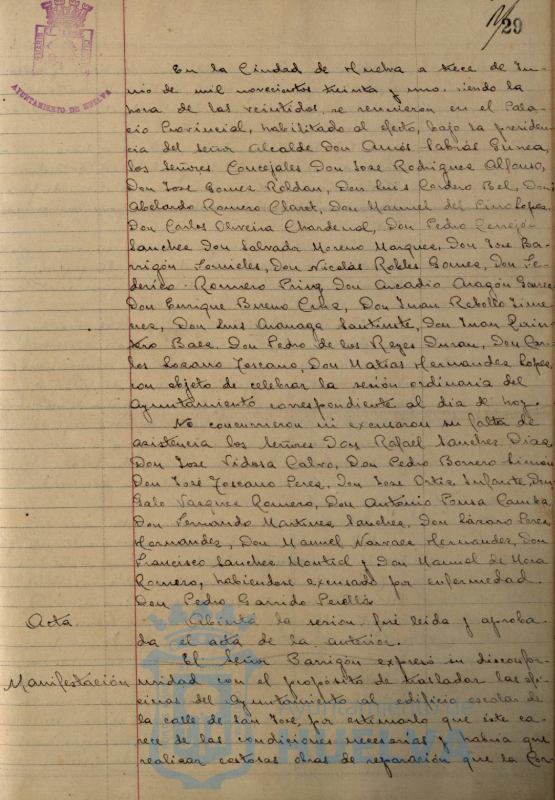 29
AYUNTAMIENTO DE HUELVA
En la Ciudad de Huelva a trece de Ju-
nio de mil novecientos treinta y uno, siendo la
hora de las veintidos, se reunieron en el Pala-
cio Provincial, habilitado al efecto, bajo la presiden-
cia del Señor Alcalde Don Amós Sabrás Gurrea,
los Señores Concejales Don Jose Rodriguez Alfonso,
Don Jose Gomez Roldan, Don Luis Cordero Bel, Don
Abelardo Romero Claret, Don Manuel del Cino Lopez,
Don Carlos Oliveira Chardenal, Don Pedro Cerrejón
Sanchez Don Salvador Moreno Marquez, Don Jose Ba-
rrigón Fornieles, Don Nicolás Robles Gomez, Don Fe-
derico Romero Don Arcadio Aragón Gomez
Don Enrique Bueno Cruz, Don Juan Rebollo Jime-
nez, Don Luis Don Juan Quin-
tero Baez. Don Pedro de los Reyes Duran, Don Car-
los Lozano Toscano, Don Matías Hernandez Lopez,
con objeto de celebrar la sesión ordinaria del
Ayuntamiento correspondiente al dia de hoy.
No concurrieron ni excusaron su falta de
asistencia los Señores Don Rafael Sanchez Diaz
Don Jose Vidosa Calvo, Don Pedro Borrero Limon
Don José Toscano Perez, Don Jose Ortiz Infante, Don
Galo Vazquez Romero, Don António Pousa Camba,
Don Fernando Martinez Sanchez, Don Lázaro Perez
Hernandez, Don Manuel Narvaez Hernandez, Don
Francisco Sanchez Montiel y Don Manuel de Mora
Romero, habiendose excusado por enfermedad.
Don Pedro Garrido Perelló
Acta Abierta la sesion fué leida y aproba-
da el acta de la anterior.
Manifestación El Señor Barrigón expresó su disconfor-
midad con el propósito de trasladar las ofi-
cinas del Ayuntamiento al edificio escolar de
la calle de San José, por estimarlo que éste ca-
rece de las condiciones necesarias y habria que
realizar costosas obras de reparación que la Cor-
HUELVA